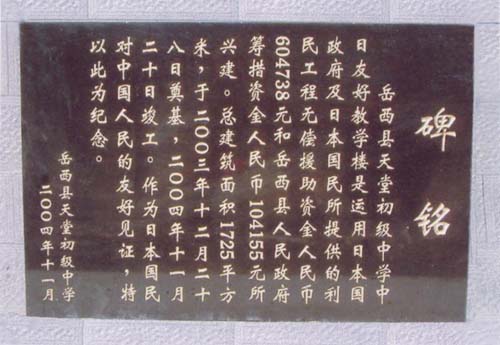 碑铭
岳西县天堂初级中学中
日友好教学楼是运用日本国
政府及日本国民所提供的利
民工程无偿援助资金人民币
604738元和岳西县人民政府
筹措资金人民币104155元所
兴建。总建筑面积1725平方
米，于二00三年十二月二十
八日奠基，二00四年十一月
二十日竣工。作为日本国民
对中国人民的友好见证，特
以此为纪念。
岳西县天堂初级中学
二00四年十一月